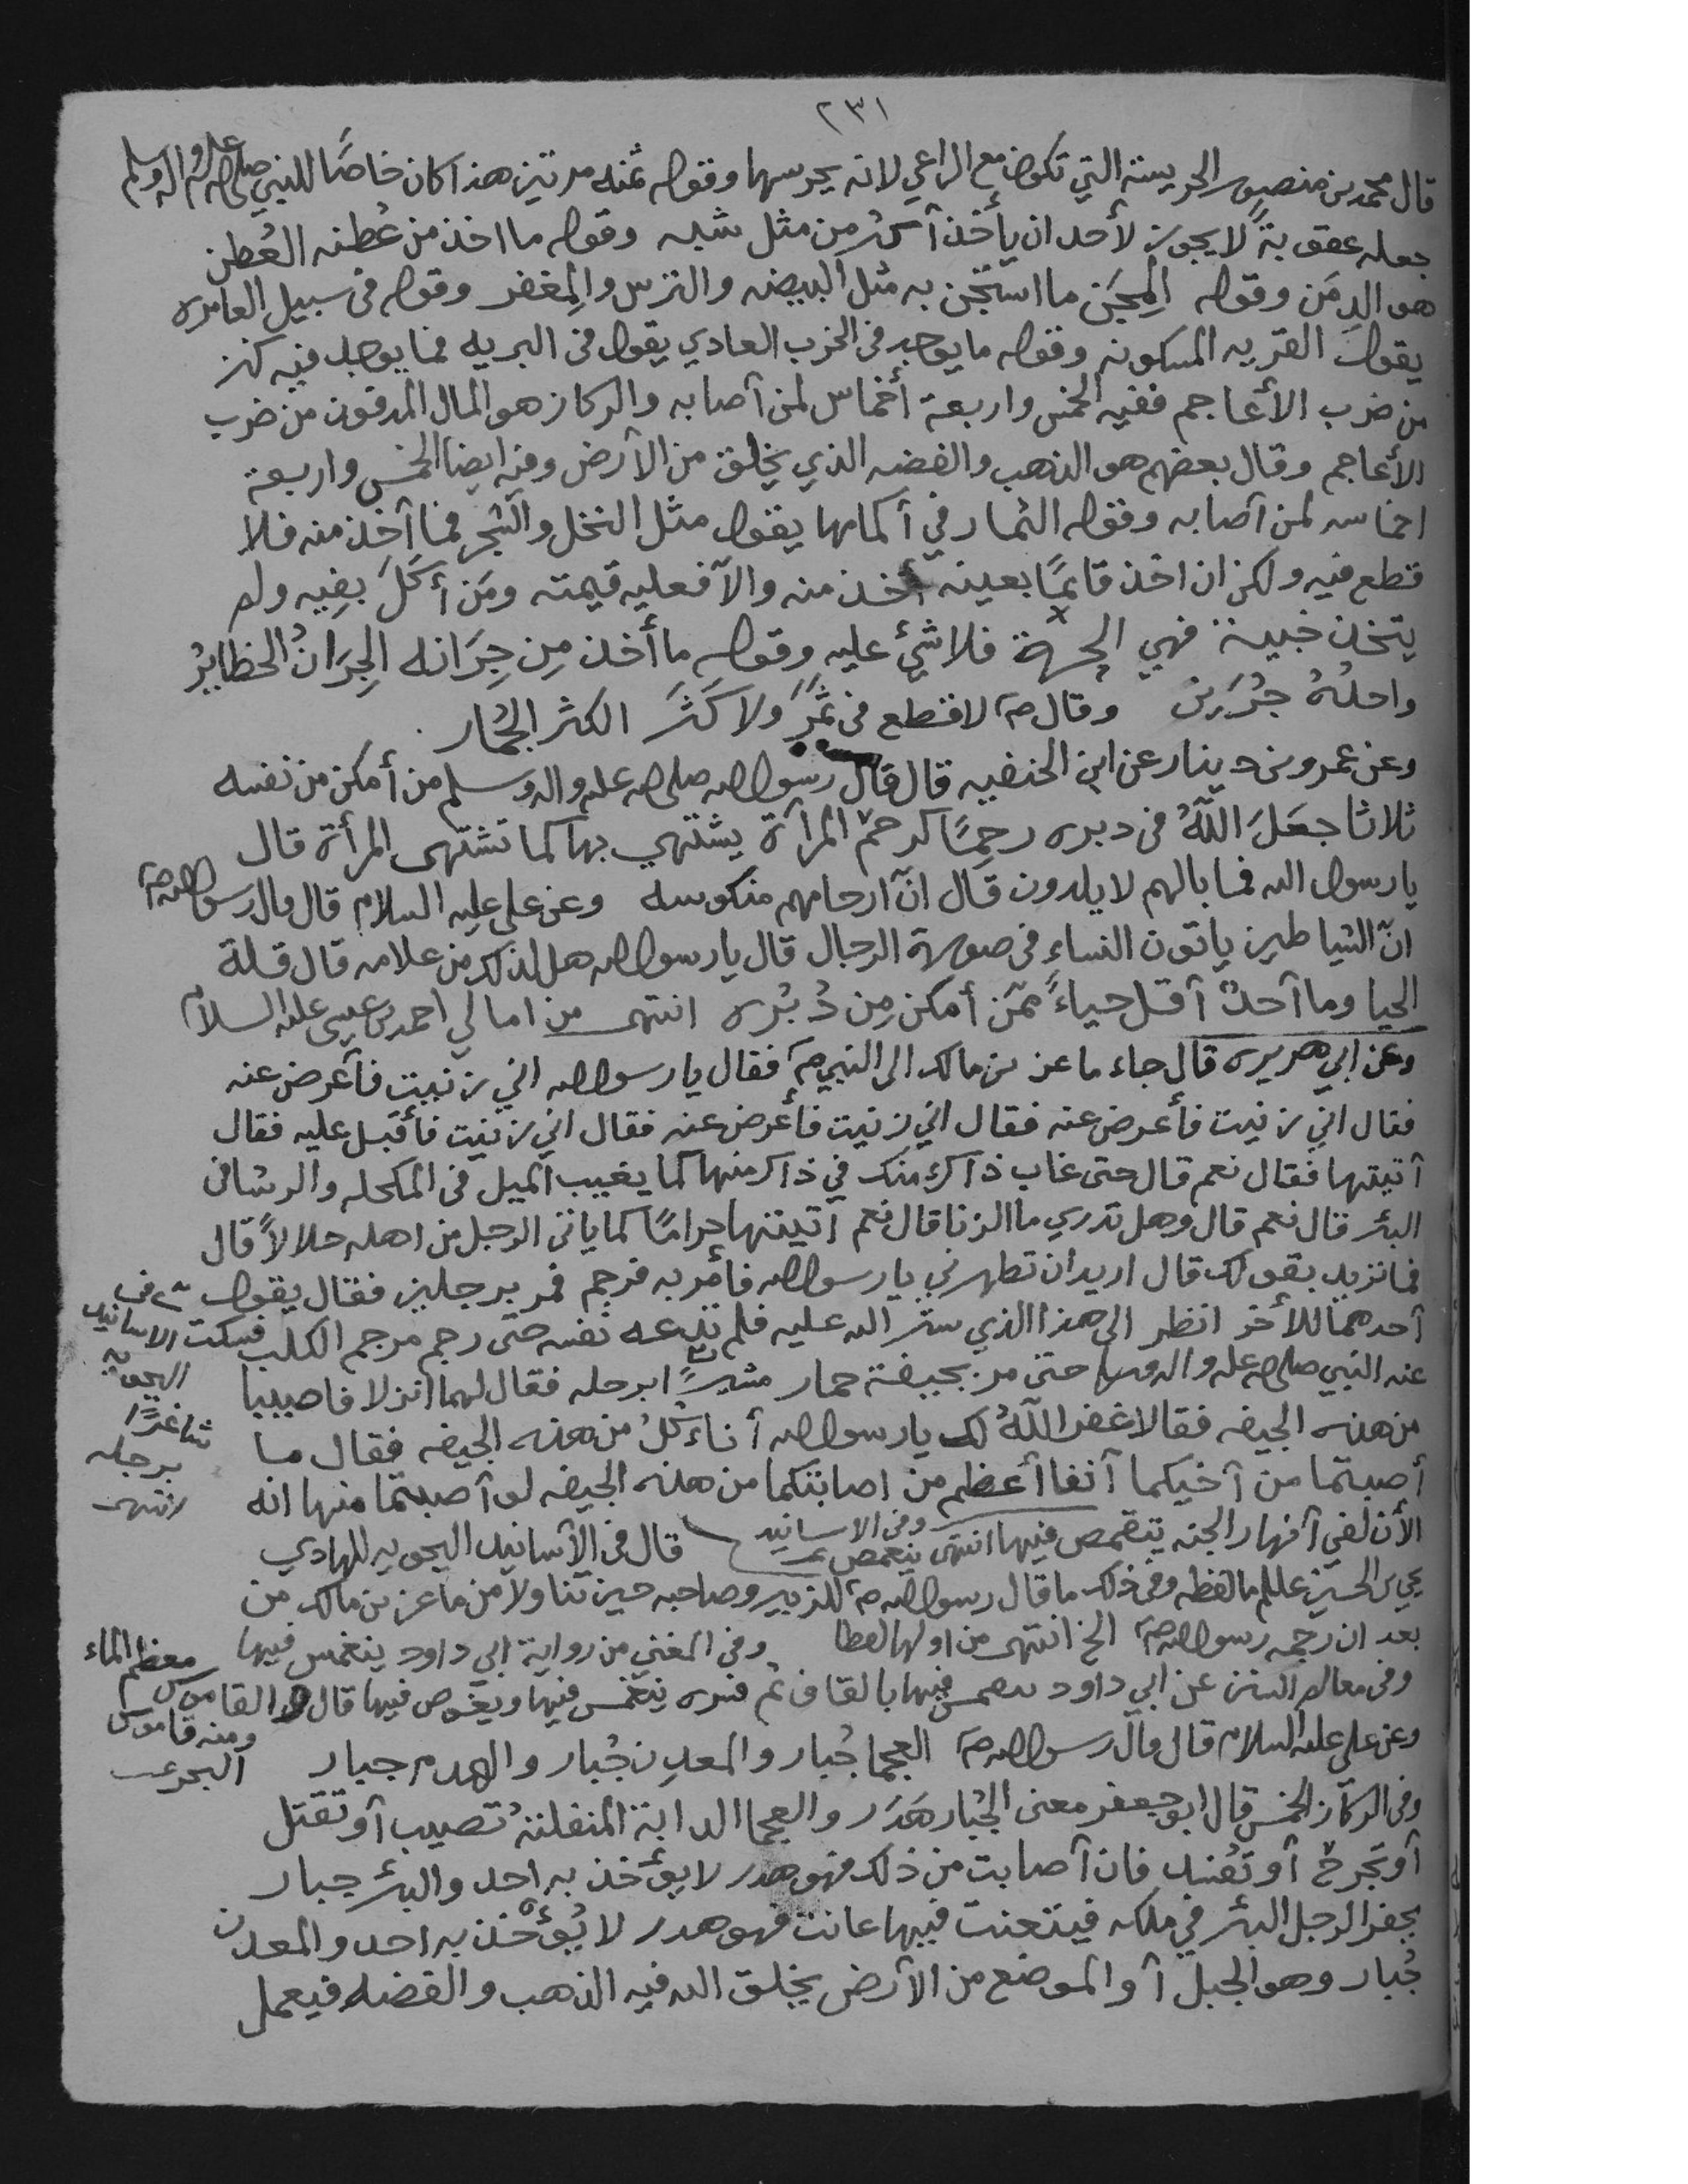 ٢٣١
قال محمد بن منصور الحريسة التي تكون مع الراعي لانه يحرسها وقوله ثمنه مرتين هذا كان خاصًا للنبي صلى الله عليه واله وسلم
جعله عقوبةً لا يجوز لأحد ان يأخذ آكثر من مثل شيه وقوله ما اخذ من عُطنه العُطن
هو الدِمَن وقوله المِجَن ما استجن به مثل البيضه والترس والمِغفر وقوله في سبيل العامره
يقول القريه المسكونه وقوله ما يوجد في الخرب العادي يقول في البريه فما يوجد فيه كنز
من ضرب الأعاجم ففيه الخمس واربعة أخماس لمن آصابه والركاز هو المال المدفون من ضرب
الأعاجم وقال بعضهم هو الذهب والفضه الذي يخلق من الآرض وفيه ايضا الخمس واربعة
اخماسه لمن آصابه وقوله الثمار في أكمامها يقول مثل النخل والشجر فما آخذ منه فلا
قطع فيه ولكن ان اخذ قائمًا بعينه أخذ منه والآ فعليه قيمته ومَن أكَلَ بفِيه ولم
يتخذ خبينة فهي الجهة فلا شئ عليه وقوله ما أخذ مِن جِرَانه الجِرَانُ الحظايرُ
واحدُهُ جَرَين وقال صم لا قطع في ثَمَرٍ ولا كَثَر الكثر الجُمار
وعن عمرو بن دينار عن ابن الحنفيه قال قال رسول الله صلى الله عليه واله وسلم من أمكن من نفسه
ثلاثا جعَلَ اللَّهُ في دبره رحِمًا كرحم المرآة يشتهي بها كما تشتهى المرأة قال
يا رسول الله فما بالهم لا يلدون قال انّ آرحامهم منكوسه وعن علي عليه السلام قال قال رسول الله صم
انّ الشياطين ياتون النساء في صورة الرجال قال يا رسول الله هل لذلك من علامه قال قلة
الحيا وما آحدٌ آقل حياءً ممّن أمكن مِن دُبُره انتهى من امالي احمد بن عيسى عليه السلام
وعن ابي هريره قال جاء ماعز بن مالك الى النبي صم فقال يا رسول الله اني زنيت فآعرض عنه
فقال اني زنيت فأعرض عنه فقال اني زنيت فأعرض عنه فقال اني زنيت فأقبل عليه فقال
آتيتها فقال نعم قال حتى غاب ذاكرُ منك في ذاكر منها كما يغيب الميل في المكحله والرشا في
البئر قال نعم قال وهل تدري ما الزنا قال نعم آتيتها حرامًا كما ياتي الرجل من اهله حلالاً قال
فما تريد بقولك قال اريد ان تطهرني يا رسول الله فأمر به فرجم فمر برجلين فقال يقول
آحدهما للأخر انظر الى هذا الذي ستر الله عليه فلم تدعه نفسه حتى رجم مرجم الكلب فسكت
عنه النبي صلى الله عليه واله وسلم حتى مر بجيفة حمار ابرجله فقال لهما انزلا فاصيبا
من هذه الجيفه فقالا غفر اللَّهُ لك يا رسول الله أناءكلُ من هذه الجيفه فقال ما
أصبتما من آخيكما آنفا آعظم من اصابتكما من هذه الجيفه لو آصبتما منها انه
الأن لفي آنهار الجنه يتقمص فيها انتهى
وفي الاسانيد ينغمص
قال في الآسانيد اليحيويه للهادي
يحي بن الحسين عللم ما لفظه وفي ذلك ما قال رسول الله صم للزبير وصاحبه حين تناولا من ماعز بن مالك من
بعد ان رجمه رسول الله صم الخ انتهى من اولها لفظا وفي المغني من رواية ابي داود ينغمس فيها
وفي معالم السنن عن ابي داود فيها بالقاف ثم فسره ينغمس فيها ويغوص فيها قال والقاموس معظم الماء
ومنه قاموس البحر
وعن علي عليه السلام قال قال رسول الله صم العجما جُبار والمعدِن جُبار والهدم جبار
وفي الركاز الخمس قال ابو جعفر معنى الجُبار هَدَر والعجما الدابة المنفلتهُ تصيب آو تقتل
آو تجرح آو تفند فان آصابت من ذلك فهو هدر لا يؤخذ به احد والبئر جبار
يحفر الرجل البئر في ملكه فيتعنت فيها عانت فهو هدر لا يُؤخذ به احد والمعدن
جُبار وهو الجبل آو الموضع من الآرض يخلق الله فيه الذهب والفضه فيعمل
في الاسانيد
اليحيويه
شاغرًا
برجله
انتهى